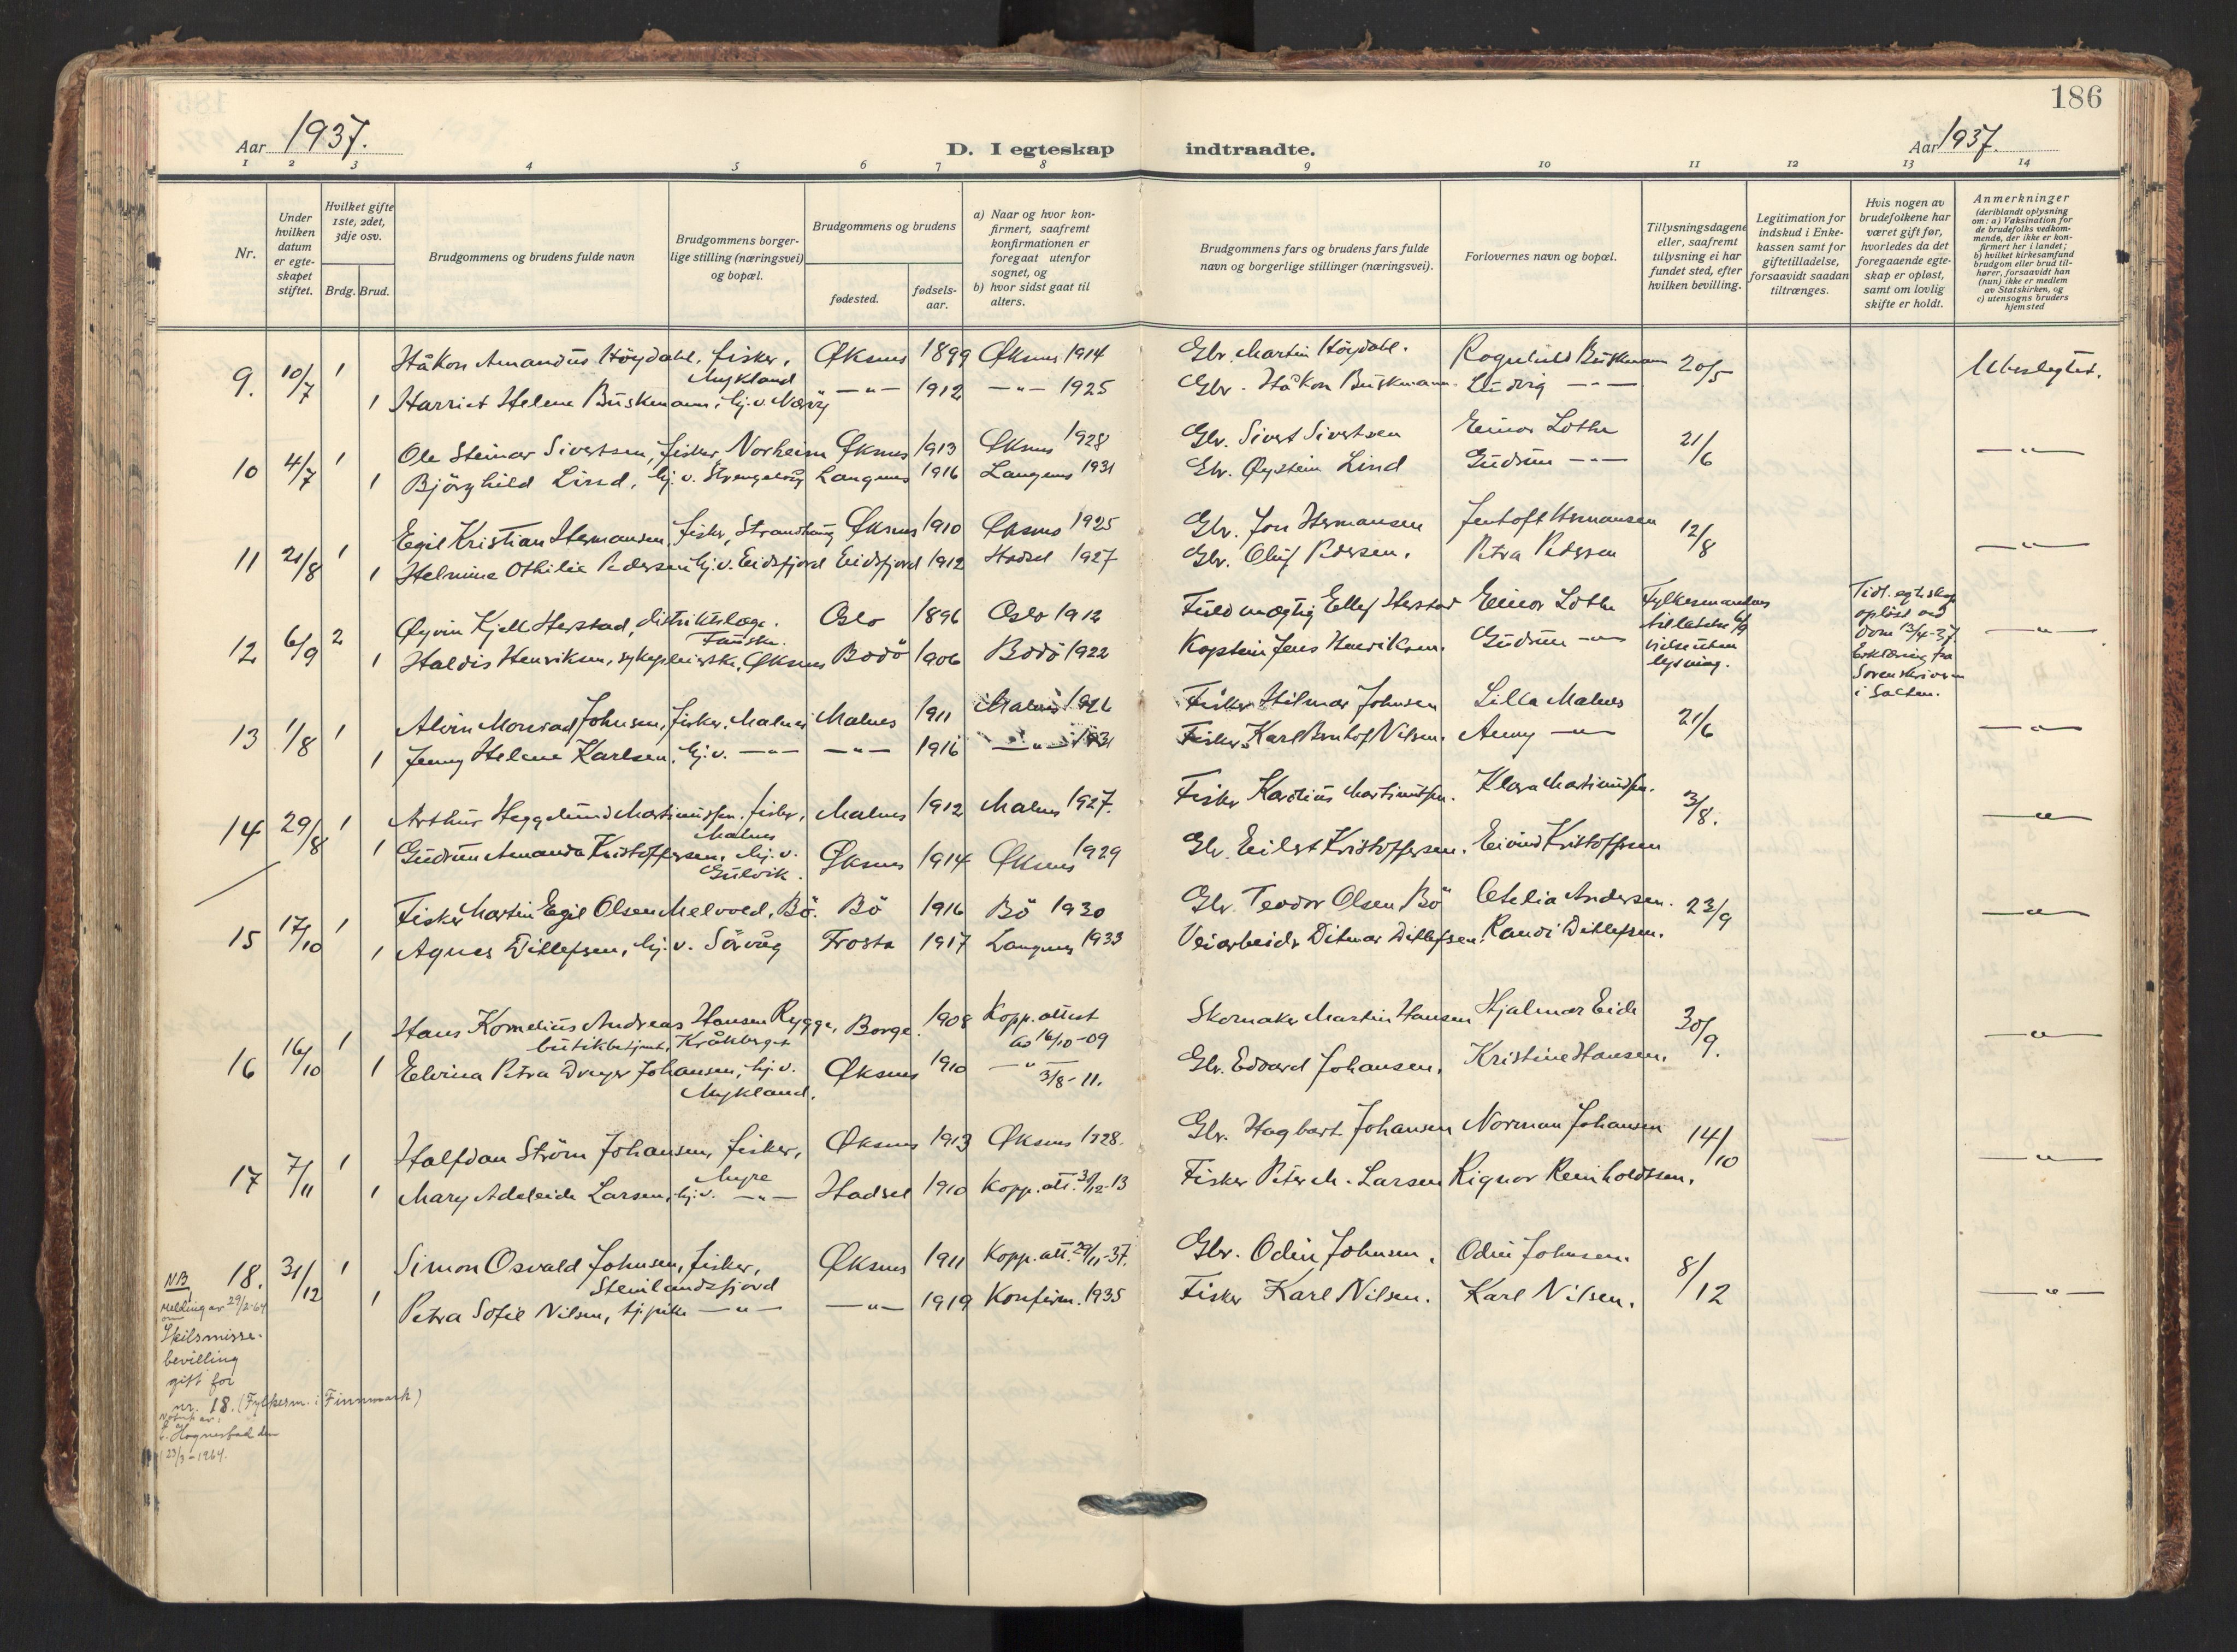 186
Aar 1937.
D. I egteskap indtraadte.
Aar 1937.
1 2 3 4 5 6 7 8 9 10 11 12 13 14
Nr.
Under hvilken datum er egte-skapet stiftet.
Hvilket gifte 1ste, 2det, 3dje osv.
Brdg. Brud.
Brudgommens og brudens fulde navn
Brudgommens borger-lige stilling (næringsvei) og bopæl.
Brudgommens og brudens
fødested.
fødsels-aar.
a) Naar og hvor kon-firmert, saafremt konfirmationen er foregaat utenfor sognet, og
b) hvor sidst gaat til alters.
Brudgommens fars og brudens fars fulde navn og borgerlige stillinger (næringsvei).
Forlovernes navn og bopæl.
Tillysningsdagene eller, saafremt tillysning ei har fundet sted, efter hvilken bevilling.
Legitimation for indskud i Enke-kassen samt for giftetilladelse, forsaavidt saadan tiltrænges.
Hvis nogen av brudefolkene har været gift før, hvorledes da det foregaaende egte-skap er opløst, samt om lovlig skifte er holdt.
Anmerkninger (deriblandt oplysning om: a) Vaksination for de brudefolks vedkom-mende, der ikke er kon-firmert her i landet; b) hvilket kirkesamfund brudgom eller brud til-hører, forsaavidt han (hun) ikke er medlem av Statskirken, og c) utensogns bruders hjemsted
9. 10/7 1 Håkon Amandus Höydahl, fisker, Mykland Øksnes 1899 Øksnes 1914 Gbr. Martin Höydahl. Ragnhild Buskmann 20/5 Ubeslegtet.
1 Harriet Helene Buskmann, hj.v. —"— 1912 —"— 1925 Gbr. Håkon Buskmann. Ludvig —"—
10 4/7 1 Ole Steinar Sivertsen, fisker, Norheim Øksnes 1913 Øksnes 1928 Gbr. Sivert Sivertsen Einar Lothe 21/6 —"—
1 Bjørghild Lind, hj.v. Strengelvåg Langenes 1916 Langenes 1931 Gbr. Øystein Lind Gudrun —"—
11 21/8 1 Egil Kristian Hermansen, fisker, Øksnes 1910 Øksnes 1925 Gbr. Jon Hermansen Jentoft Hermansen 12/8 —"—
1 Helmine Othilie Pedersen hj.v. Eidsfjord Eidsfjord 1912 Hadsel 1927 Gbr. Oluf Pedersen. Petra Pedersen
12 6/9 2 Øyvin Kjell Herstad, distriktslæge. Fauske. Oslo 1896 Oslo 1912 Fuldmægtig Ellef Herstad Einar Lothe Fylkesmandens tillatelse 6/9 vielse uten lysning. Tidl. egteskap opløst ved dom 13/4-37. Erklæring fra Sorenskriveren i Salten. —"—
1 Haldis Henriksen, sykepleierske, Øksnes Bodö 1906 Bodö 1922 Kaptein Jens Henriksen. Gudrun —"—
13 1/8 1 Alvin Monrad Johnsen, fisker, Malnes Malnes 1911 Malnes 1926 Fisker Hilmar Johnsen Lilla Malnes 21/6 —"—
1 Jenny Helene Karlsen, hj.v. —"— —"— 1916 —"— 1931 Fisker Karl Nilsen. Aenny —"—
14 29/8 1 Arthur Heggelund Martinussen, fisker, Malnes Malnes 1912 Malnes 1927. Fisker Karolius Martinussen. Klara Martinussen. 3/8. —"—
1 Gudrun Amanda Kristoffersen, hj.v. Gulvik. Øksnes 1914 Øksnes 1929 Gbr. Eilert Kristoffersen. Eivind Kristoffersen
15 17/10 1 Fisker Martin Egil Olsen Melvold, Bö. Bö 1916 Bö 1930 Gbr. Teodor Olsen Bö Otelia Andersen. 23/9 —"—
1 Agnes Ditlefsen, hj.v. Sörvåg Frosta 1917 Langenes 1933 Veiarbeider Ditmar Ditlefsen. Randi Ditlefsen.
16 16/10 1 Hans Kornelius Andreas Hansen Rygge, butikbetjent, Kråkberget Borge. 1908 Kopp.attest av 16/10-09 Skomaker Martin Hansen Hjalmar Eide 30/9. —"—
1 Elvina Petra Dreyer Johansen, hj.v. Mykland. Øksnes 1910 —"— 3/8-11. Gbr. Edvard Johansen. Kristine Hansen.
17 7/11 1 Halfdan Ström Johansen, fisker, Myre Øksnes 1913 Øksnes 1928. Gbr. Hagbart Johansen Norman Johansen 14/10 —"—
1 Mary Adeleide Larsen, hj.v. —"— Hadsel 1910 Kopp.att. 31/12-13 Fisker Peter M. Larsen Rignor Reinholdtsen.
18. 31/12 1 Simon Osvald Johnsen, fisker, Steinlandsfjord Øksnes 1911 Kopp.att. 29/11-37. Gbr. Odin Johnsen. Odin Johnsen. 8/12 —"—
1 Petra Sofie Nilsen, hj.pike —"— —"— 1919 Konfirm. 1935 Fisker Karl Nilsen. Karl Nilsen.
NB
Melding av 29/2-64
om
Skilsmisse-
bevilling
gitt for
nr. 18. (Fylkesm. i Finnmark)
23/3-1964.